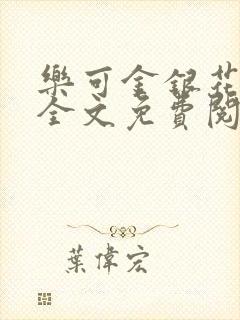 樂可金銀花
全文免費閱
葉偉宏